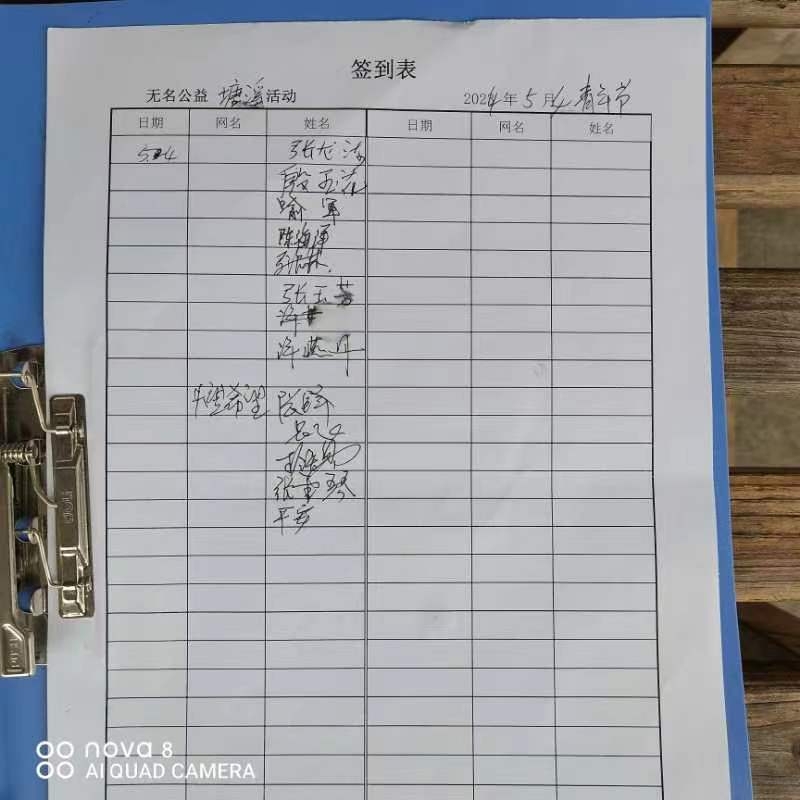 签到表
无名公益 塘溪 活动 2024年5月4 青年节
日期 网名 姓名 日期 网名 姓名
5.4 张
殷玉花
喻军
陈
张玉芳
许
许燕丹
希望 段
张 琴
平安
deli
deli
nova 8
AI QUAD CAMERA